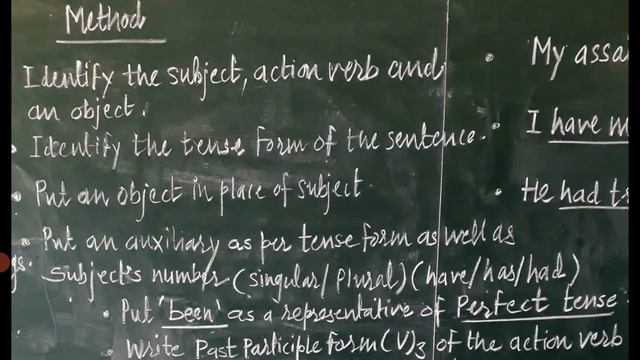 Method
Identify the subject, action verb and
an object.
• Identify the tense form of the sentence.
• Put an object in place of subject.
• Put an auxiliary as per tense form as well as
subject's number (singular/plural) (have/has/had)
• Put 'been' as a representative of Perfect tense
• Write Past Participle form (V)3 of the action verb
• My
• I have
• He had